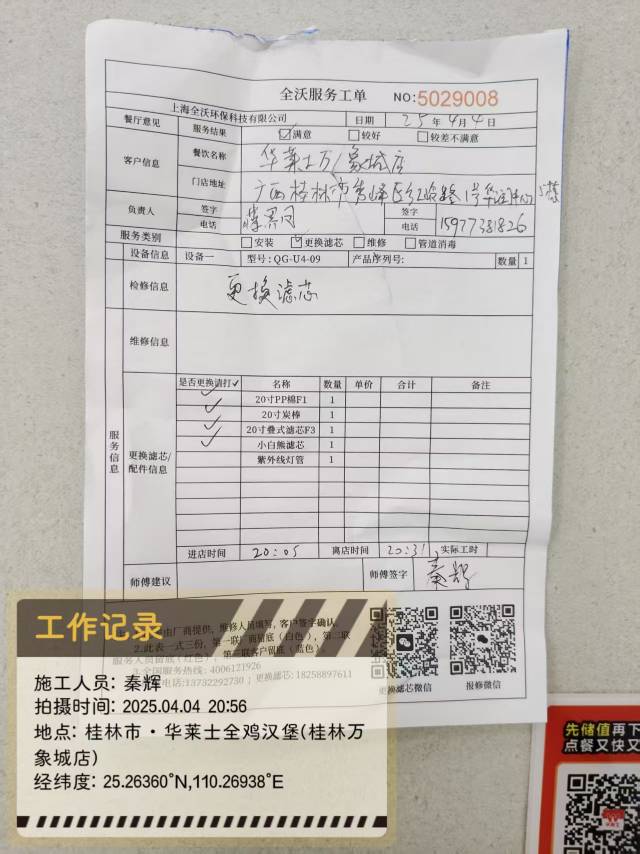 全沃服务工单 NO:5029008
上海全沃环保科技有限公司 日期 25年4月4日
餐厅意见 服务结果 ☑满意 □较好 □较差不满意
客户信息 餐饮名称 华莱士万象城店
门店地址 广西桂林市秀峰区红岭路1号华润中心
负责人 签字 签字
电话 电话 15977381826
服务类别 □安装 ☑更换滤芯 □维修 □管道消毒
设备信息 设备一 型号: QG-U4-09 产品序列号: 数量 1
检修信息 更换滤芯
维修信息
服务信息
更换滤芯/配件信息
是否更换请打✓ 名称 数量 单价 合计 备注
✓ 20寸PP棉F1 1
✓ 20寸炭棒 1
✓ 20寸叠式滤芯F3 1
✓ 小白熊滤芯 1
紫外线灯管 1
进店时间 20:05 离店时间 20:31 实际工时
师傅建议 师傅签字 秦辉
由厂商提供, 维修人员填写, 客户签字确认。
2.此表一式三份, 第一联厂商留底(白色), 第二联
服务人员留底(红色), 第三联客户留底(蓝色)。
3.全国服务热线: 4006171926
电话:13732292730 ; 更换滤芯:18258897611
更换滤芯微信 报修微信
工作记录
施工人员: 秦辉
拍摄时间: 2025.04.04 20:56
地点: 桂林市·华莱士全鸡汉堡(桂林万
象城店)
经纬度: 25.26360°N,110.26938°E
先储值再下
点餐又快又